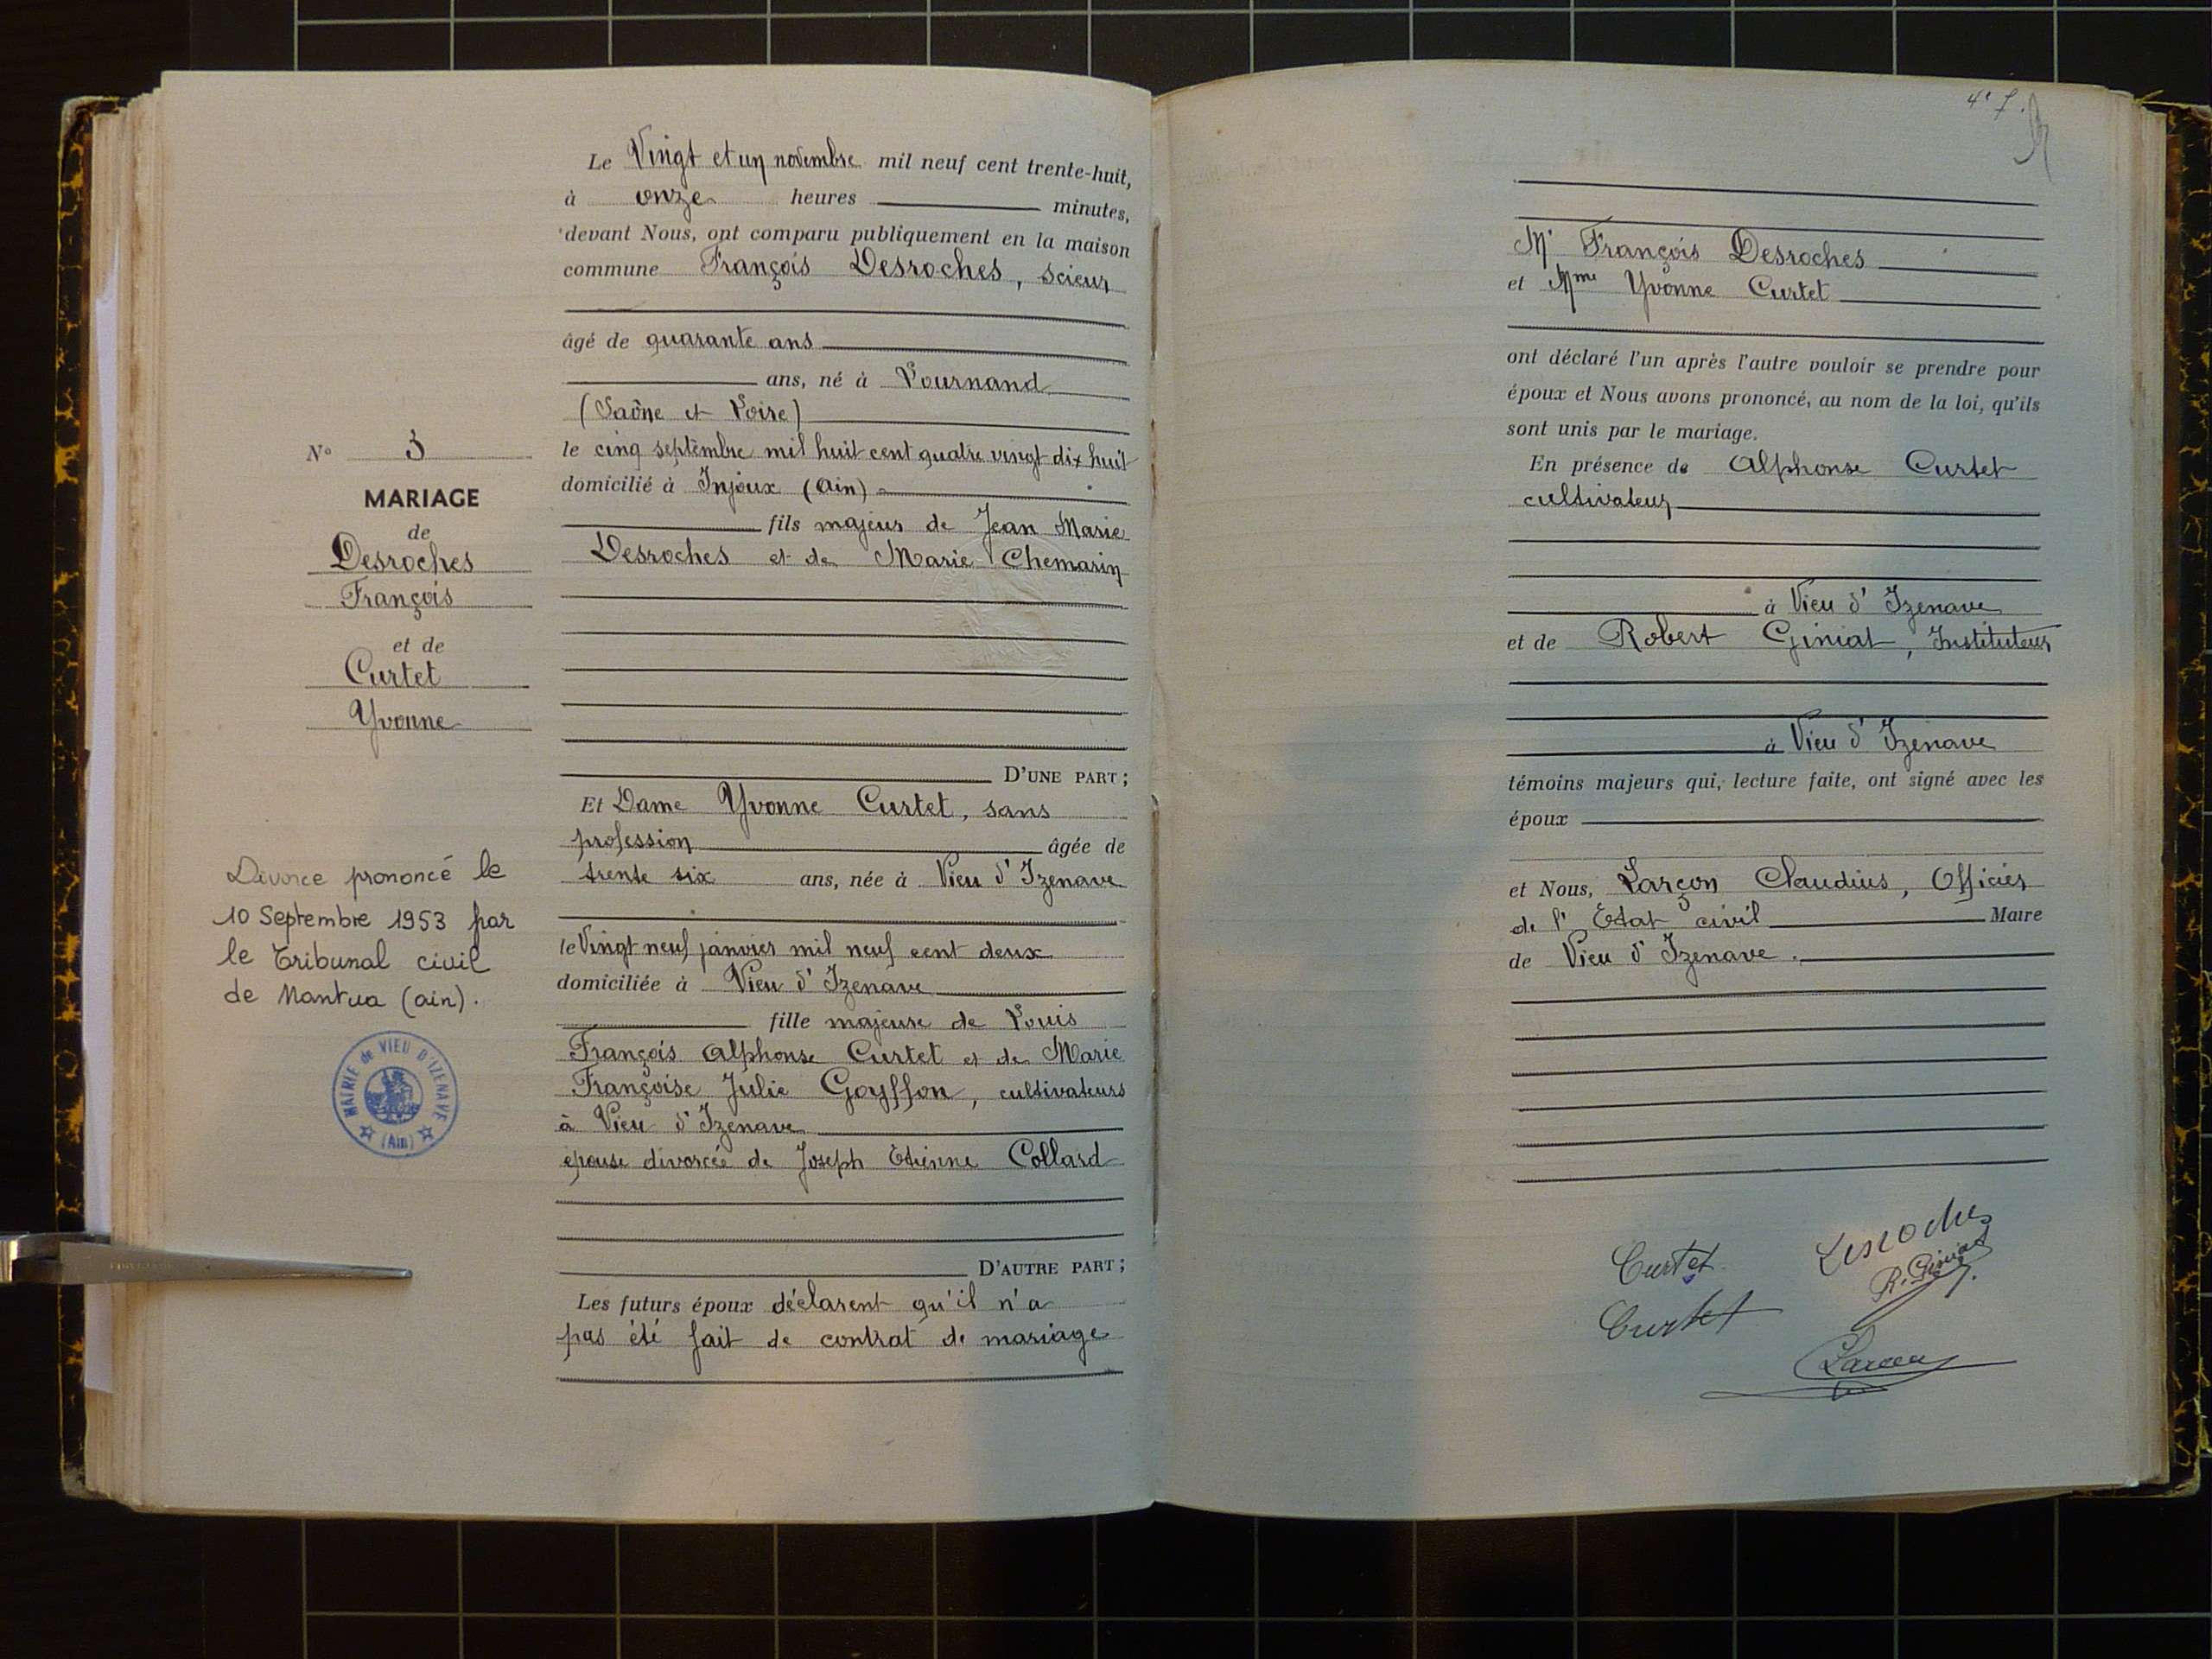 Le Vingt et un novembre mil neuf cent trente-huit,
à onze heures minutes,
devant Nous, ont comparu publiquement en la maison
commune François Desroches, scieur
âgé de quarante ans
ans, né à Lournand
(Saône et Loire)
le cinq septembre mil huit cent quatre vingt dix huit
domicilié à Injoux (Ain)
fils majeur de Jean Marie
Desroches et de Marie Chemarin
D'UNE PART;
Et Dame Yvonne Curtet, sans
profession âgée de
trente six ans, née à Vieu d'Izenave
le Vingt neuf janvier mil neuf cent deux
domiciliée à Vieu d'Izenave
fille majeure de Louis
François Alphonse Curtet et de Marie
Françoise Julie Goyffon, cultivateurs
à Vieu d'Izenave
épouse divorcée de Joseph Etienne Collard
D'AUTRE PART;
Les futurs époux déclarent qu'il n'a
pas été fait de contrat de mariage
N° 3
MARIAGE
de
Desroches
François
et de
Curtet
Yvonne
Divorce prononcé le
10 Septembre 1953 par
le Tribunal civil
de Nantua (ain).
MAIRIE de VIEU D'IZENAVE
(Ain)
4e f.
Mr François Desroches
et Mme Yvonne Curtet
ont déclaré l'un après l'autre vouloir se prendre pour
époux et Nous avons prononcé, au nom de la loi, qu'ils
sont unis par le mariage.
En présence de Alphonse Curtet
cultivateur
à Vieu d'Izenave
et de Robert Giniat, Instituteur
à Vieu d'Izenave
témoins majeurs qui, lecture faite, ont signé avec les
époux
et Nous, Larçon Claudius, Officier
de l'Etat civil Maire
de Vieu d'Izenave.
Curtet
Desroches
R. Giniat
Curtet
Larçon